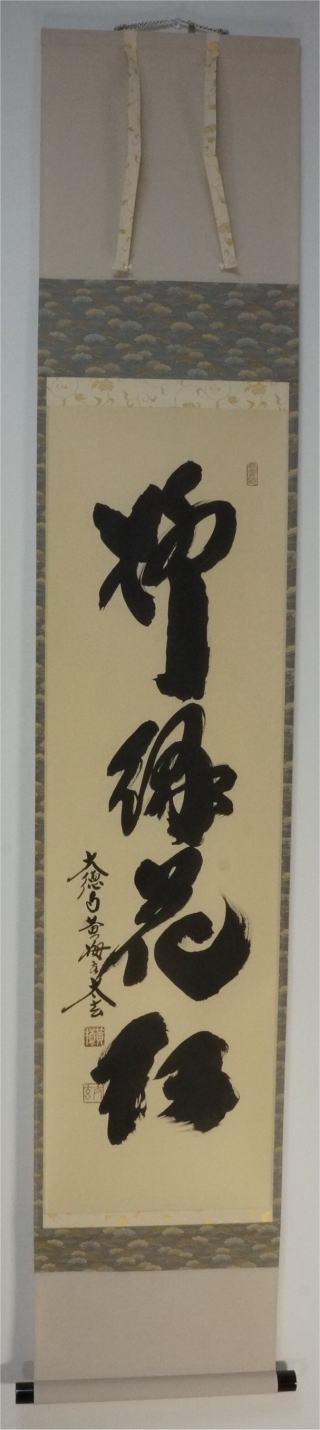 柳緑花紅
大徳寺黄梅太玄